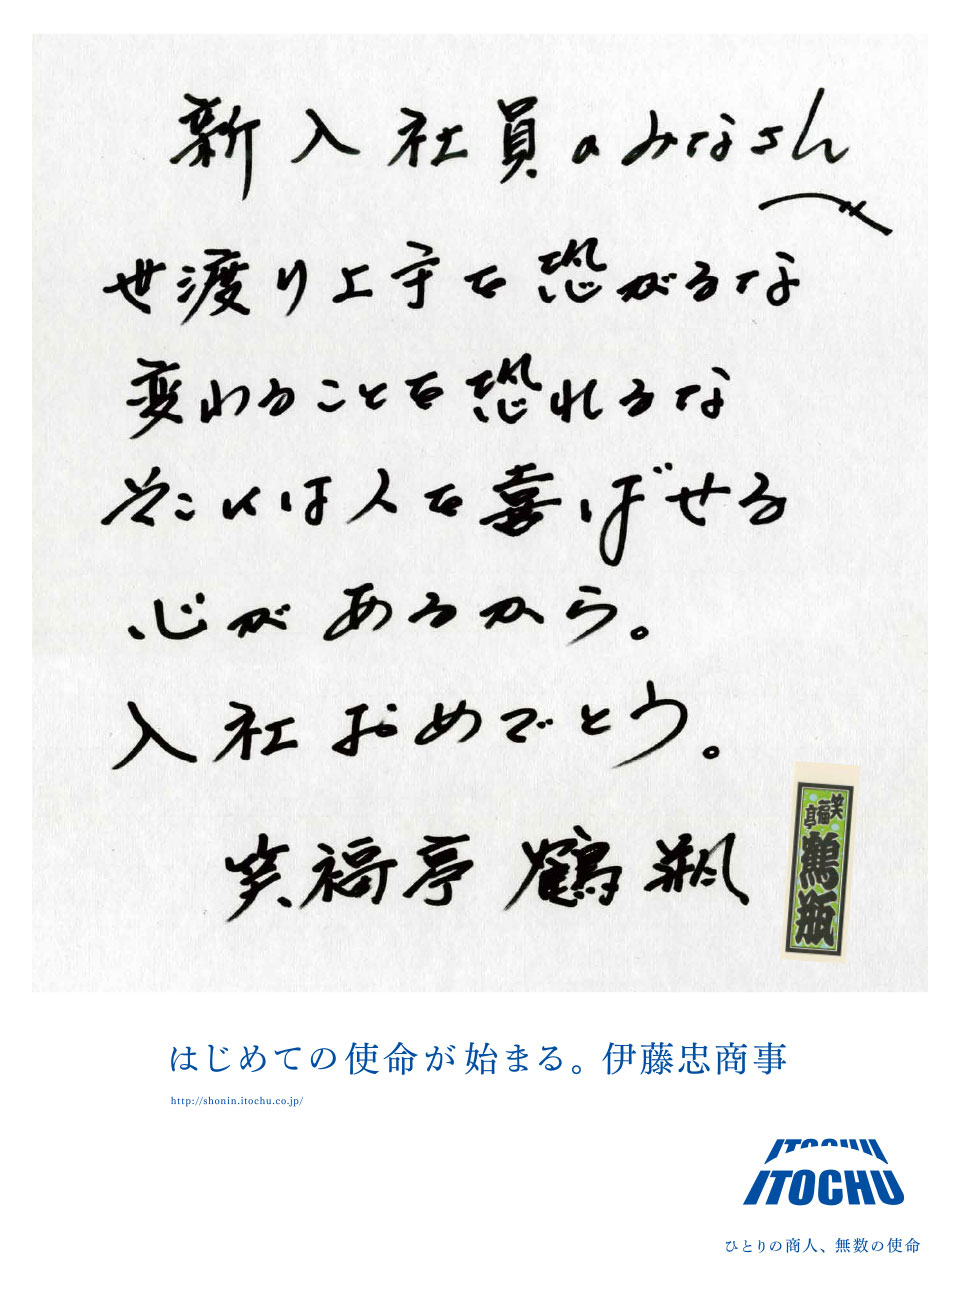 新入社員のみなさんへ
世渡り上手を恐がるな
変わることを恐れるな
そこには人を喜ばせる
心があるから。
入社おめでとう。
笑福亭 鶴瓶
笑福亭
鶴瓶
はじめての使命が始まる。伊藤忠商事
http://shonin.itochu.co.jp/
ITOCHU
ITOCHU
ひとりの商人、無数の使命